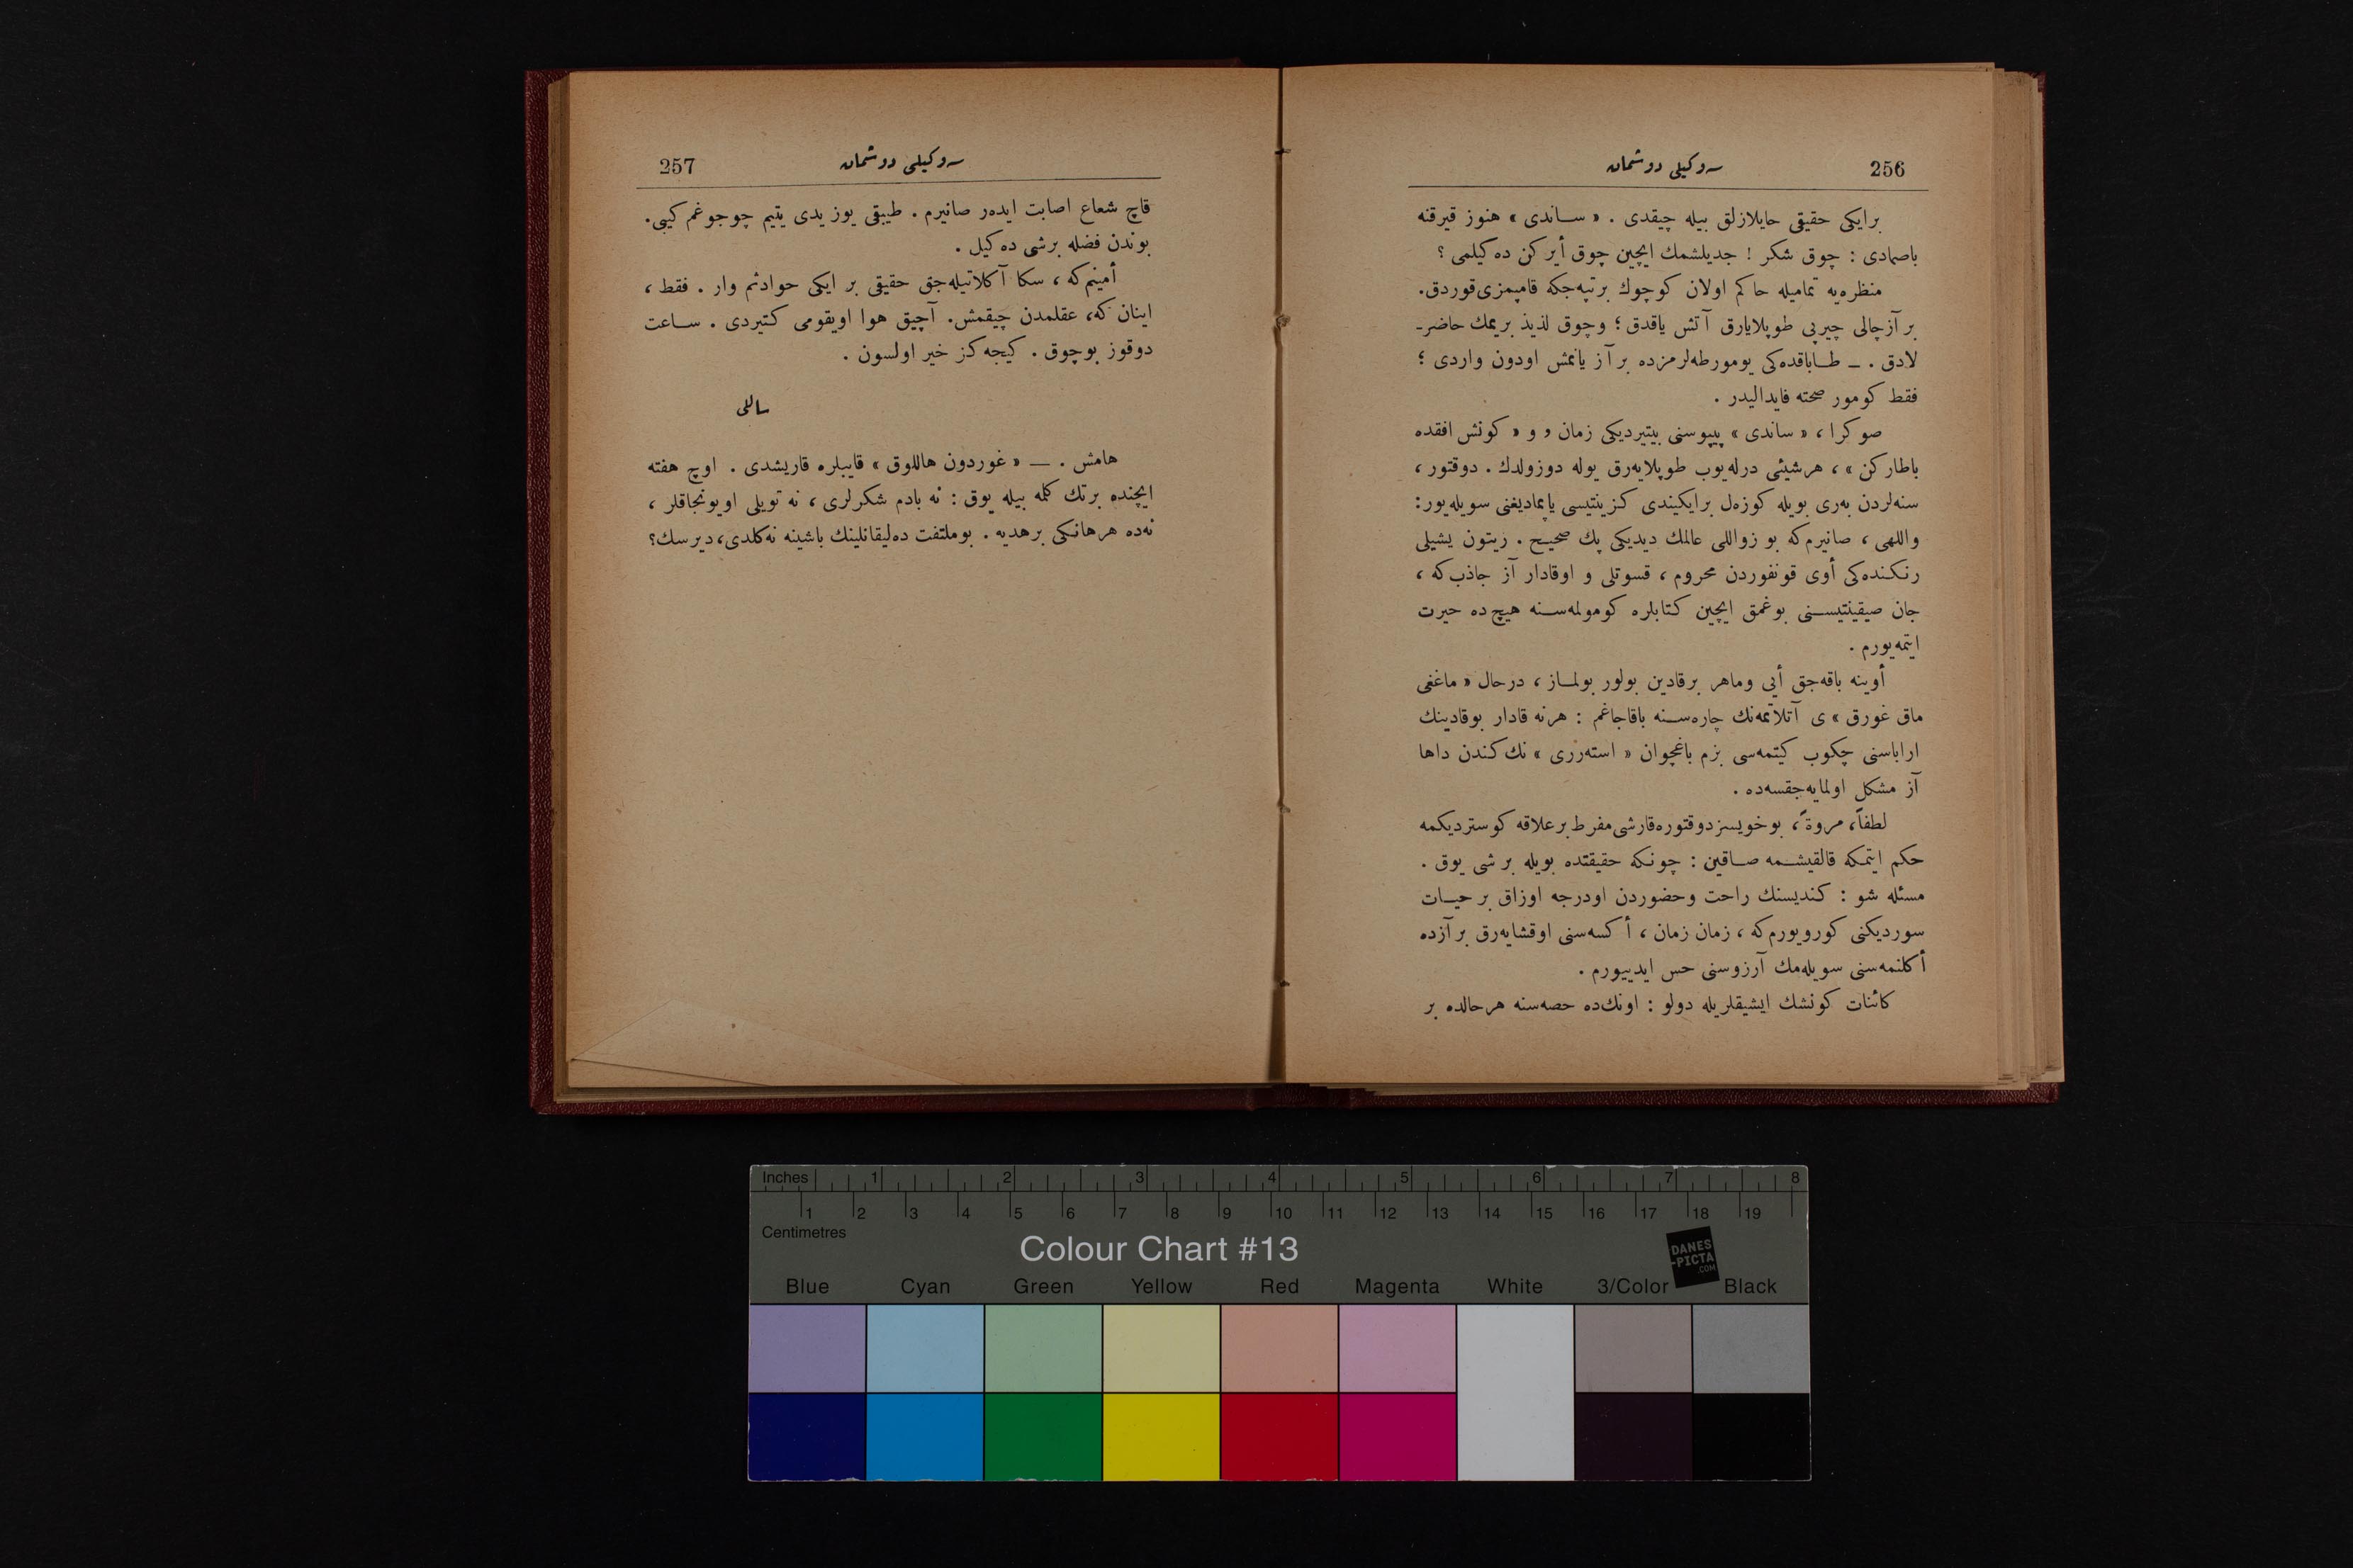 256
سەوكیلی دوشمان
برایكی حقیقی حایلازلق بیله چیقدی . « ساندی » هنوز قیرقنه
باصمادی : چوق شكر ! جدیلشمك ایچین چوق أیركن دەكیلمی ؟
منظرەیه تمامیله حاكم اولان كوچوك برتپەجكه قامپمزی قوردق.
بر آز چالی چیرپی طوپلایارق آتش یاقدق ؛ وچوق لذیذ بریمك حاضر-
لادق . ــ طاباقدەكی یومورطەلرمزدە بر آز یانمش اودون واردی ؛
فقط كومور صحته فایدالیدر .
صوكرا ، « ساندی » پیپوسنی بیتیردیكی زمان و و « كونش افقدە
باطاركن » ، هرشیئی درلەیوب طوپلایەرق یوله دوزولدك . دوقتور ،
سنەلردن بەری بویله كوزەل برایكیندی كزینتیسی یاپمادیغنی سویلەیور:
واللهی ، صانیرم كه بو زواللی عالمك دیدیكی پك صحیح . زیتون یشیلی
رنكندەكی أوی قونفوردن محروم ، قسوتلی و اوقادار آز جاذب كه ،
جان صیقینتیسنی بوغمق ایچین كتابلرە كومولمەسنه هیچ دە حیرت
ایتمەیورم .
أوینه باقەجق أیی وماهر برقادین بولور بولماز ، درحال « ماغفی
ماق غورق » ی آتلاتمەنك چارەسنه باقاجاغم : هرنه قادار بوقادینك
اراباسنی چكوب كیتمەسی بزم باغچوان « استەرری » نك كندن داها
آز مشكل اولمایەجقسەدە .
لطفاً، مروةً ، بوخویسز دوقتورەقارشی مفرط برعلاقه كوستردیكمه
حكم ایتمكه قالقیشمه صاقین : چونكه حقیقتدە بویله بر شی یوق .
مسئله شو : كندیسنك راحت وحضوردن اودرجه اوزاق بر حیات
سوردیكنی كورویورم كه ، زمان زمان ، أكسەسنی اوقشایەرق بر آزدە
أكلنمەسنی سویلەمك آرزوسنی حس ایدییورم .
كائنات كونشك ایشیقلریله دولو : اونك دە حصەسنه هرحالدە بر
257
سەوكیلی دوشمان
قاچ شعاع اصابت ایدەر صانیرم . طیبقی یوز یدی یتیم چوجوغم كیبی.
بوندن فضله برشی دەكیل .
أمینم كه ، سكا آكلاتیلەجق حقیقی بر ایكی حوادثم وار . فقط ،
اینان كه، عقلمدن چیقمش. آچیق هوا اویقومی كتیردی . ساعت
دوقوز بوچوق . كیجەكز خیر اولسون .
ساللی
هامش . — « غوردون هاللوق » قایبلرە قاریشدی . اوچ هفته
ایچندە برتك كلمه بیله یوق : نه بادم شكرلری ، نه تویلی اویونجاقلر ،
نەدە هرهانكی برهدیه . بوملتفت دەلیقانلینك باشینه نەكلدی، دیرسك؟
Inches 1 2 3 4 5 6 7 8
1 2 3 4 5 6 7 8 9 10 11 12 13 14 15 16 17 18 19
Centimetres
Colour Chart #13
DANES
-PICTA
.COM
Blue Cyan Green Yellow Red Magenta White 3/Color Black